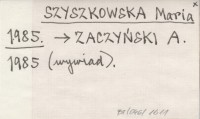 SZYSZKOWSKA Maria x
1985. → ZACZYŃSKI A.
1985 (wywiad).